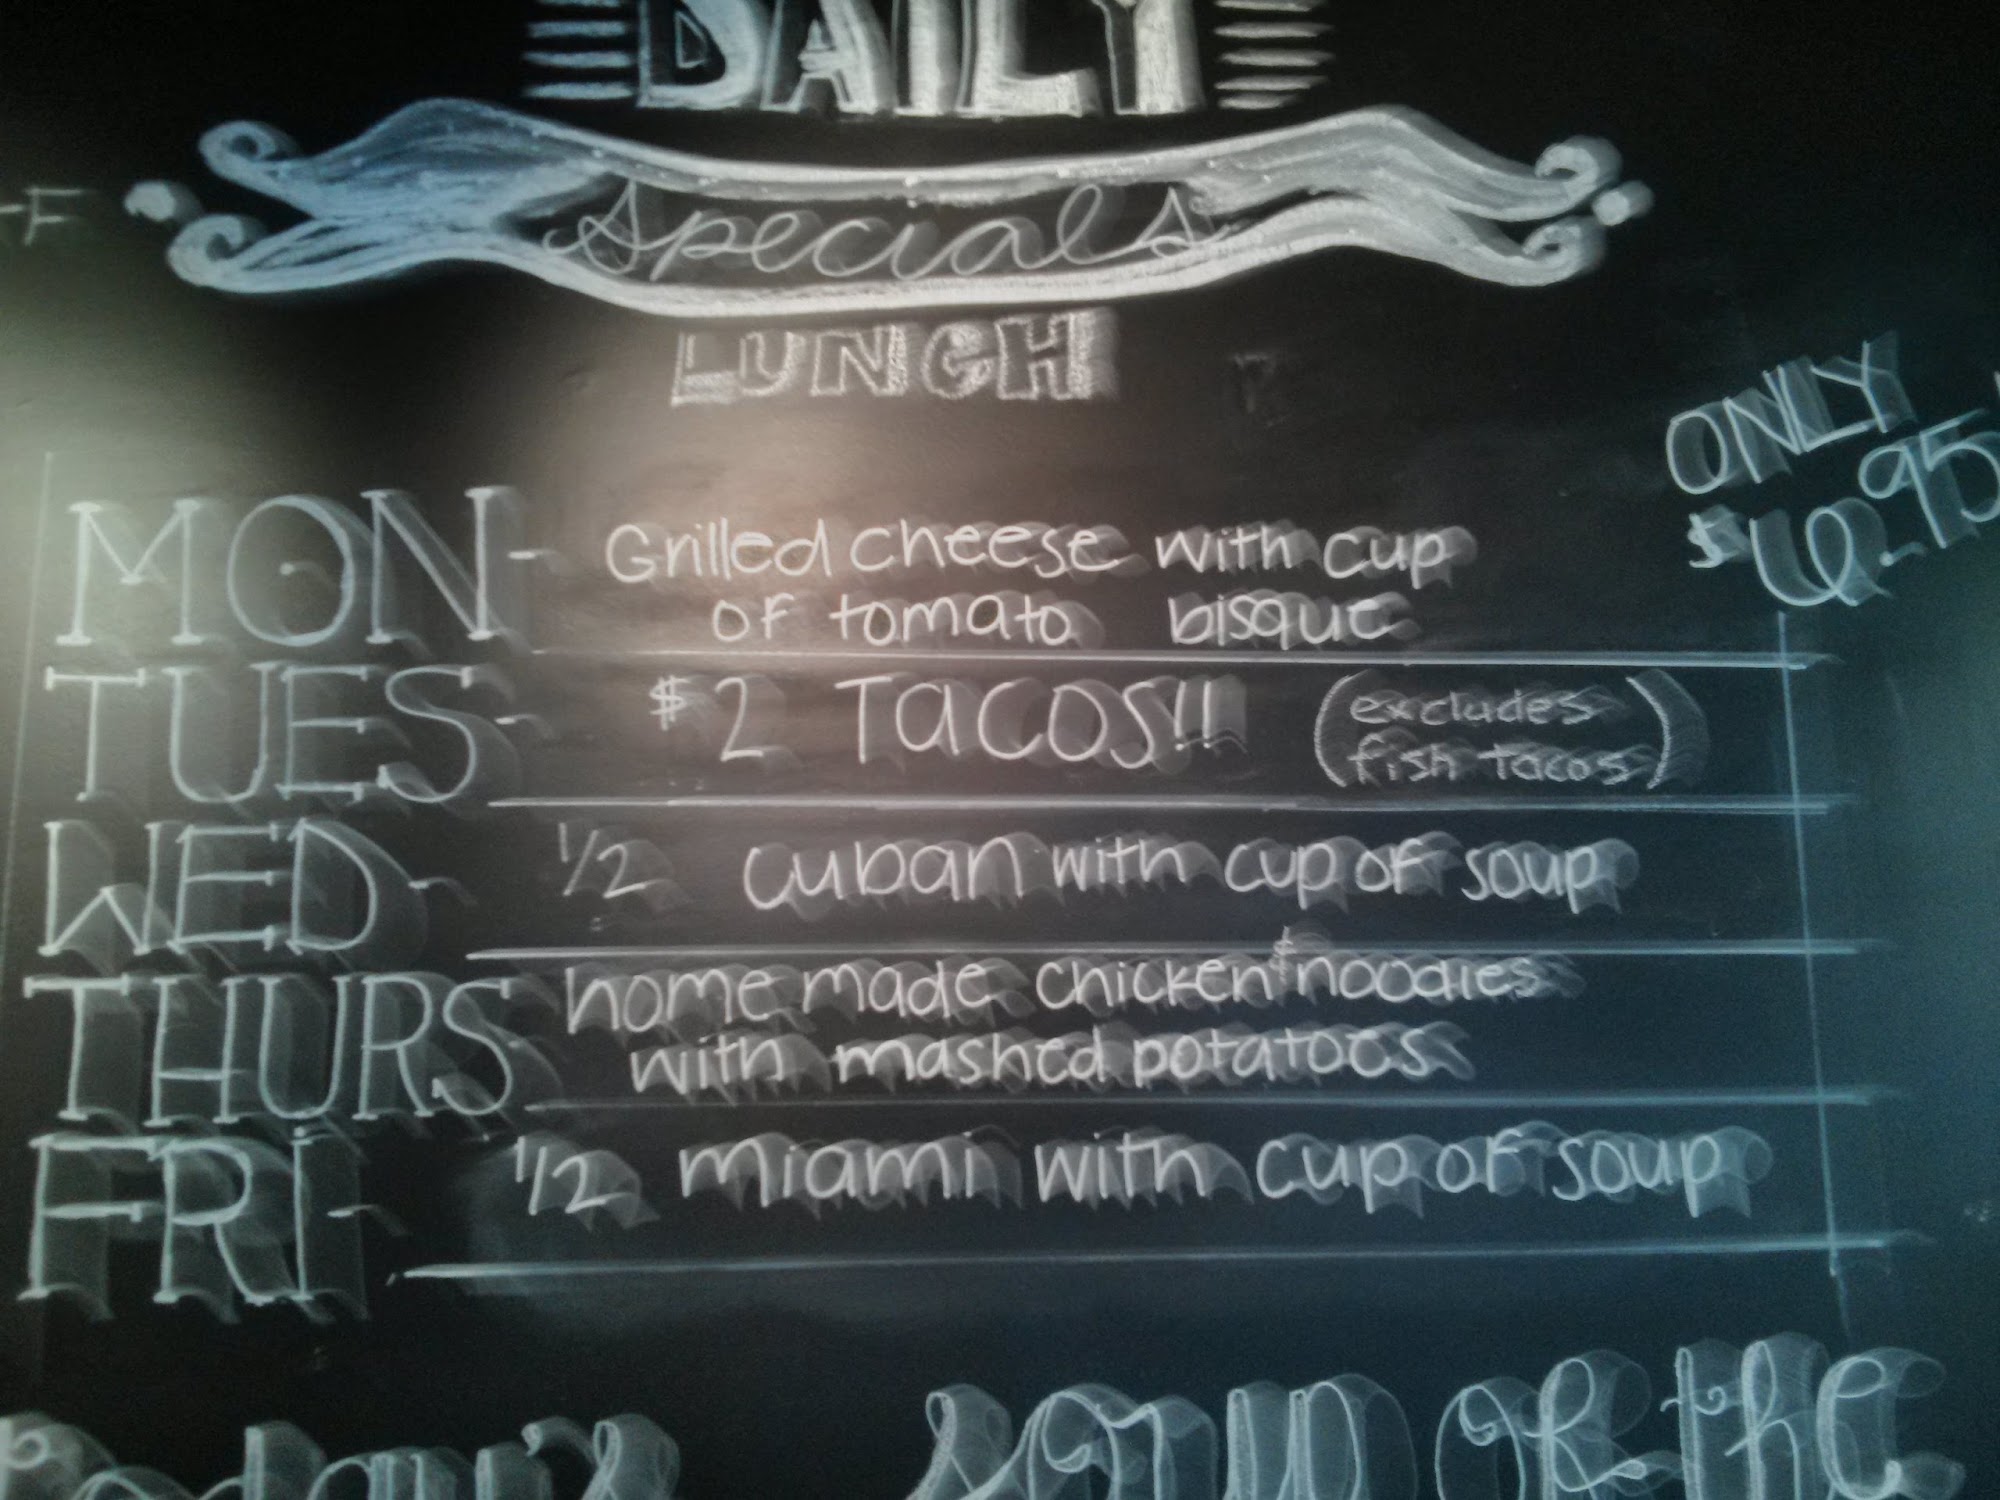 DAILY
Specials
LUNCH
ONLY
$6.95
MON- Grilled cheese with cup
of tomato bisque
TUES- $2 TACOS!! (excludes
fish tacos)
WED- 1/2 cuban with cup of soup
THURS- home made chicken & noodles
with mashed potatoes
FRI- 1/2 miami with cup of soup
soup of the